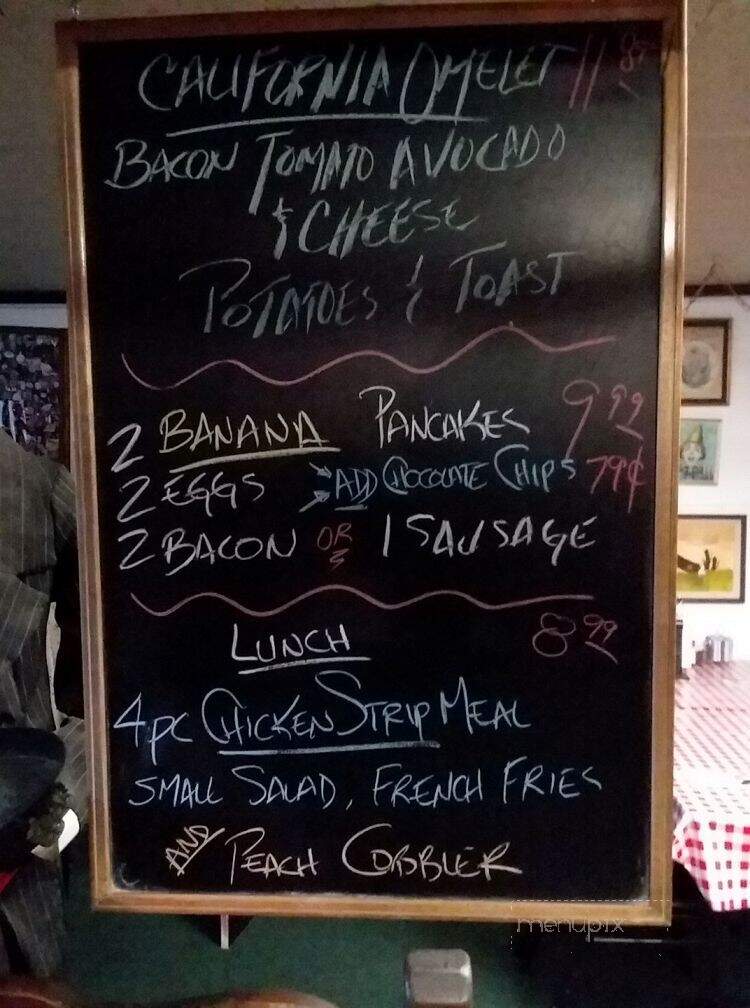 CALIFORNIA OMELET 11
BACON TOMATO AVOCADO
& CHEESE
POTATOES & TOAST
2 BANANA PANCAKES 9.99
2 EGGS ADD CHOCOLATE CHIPS 79¢
2 BACON OR 1 SAUSAGE
LUNCH 8.99
4PC CHICKEN STRIP MEAL
SMALL SALAD, FRENCH FRIES
AND PEACH COBBLER
menupix